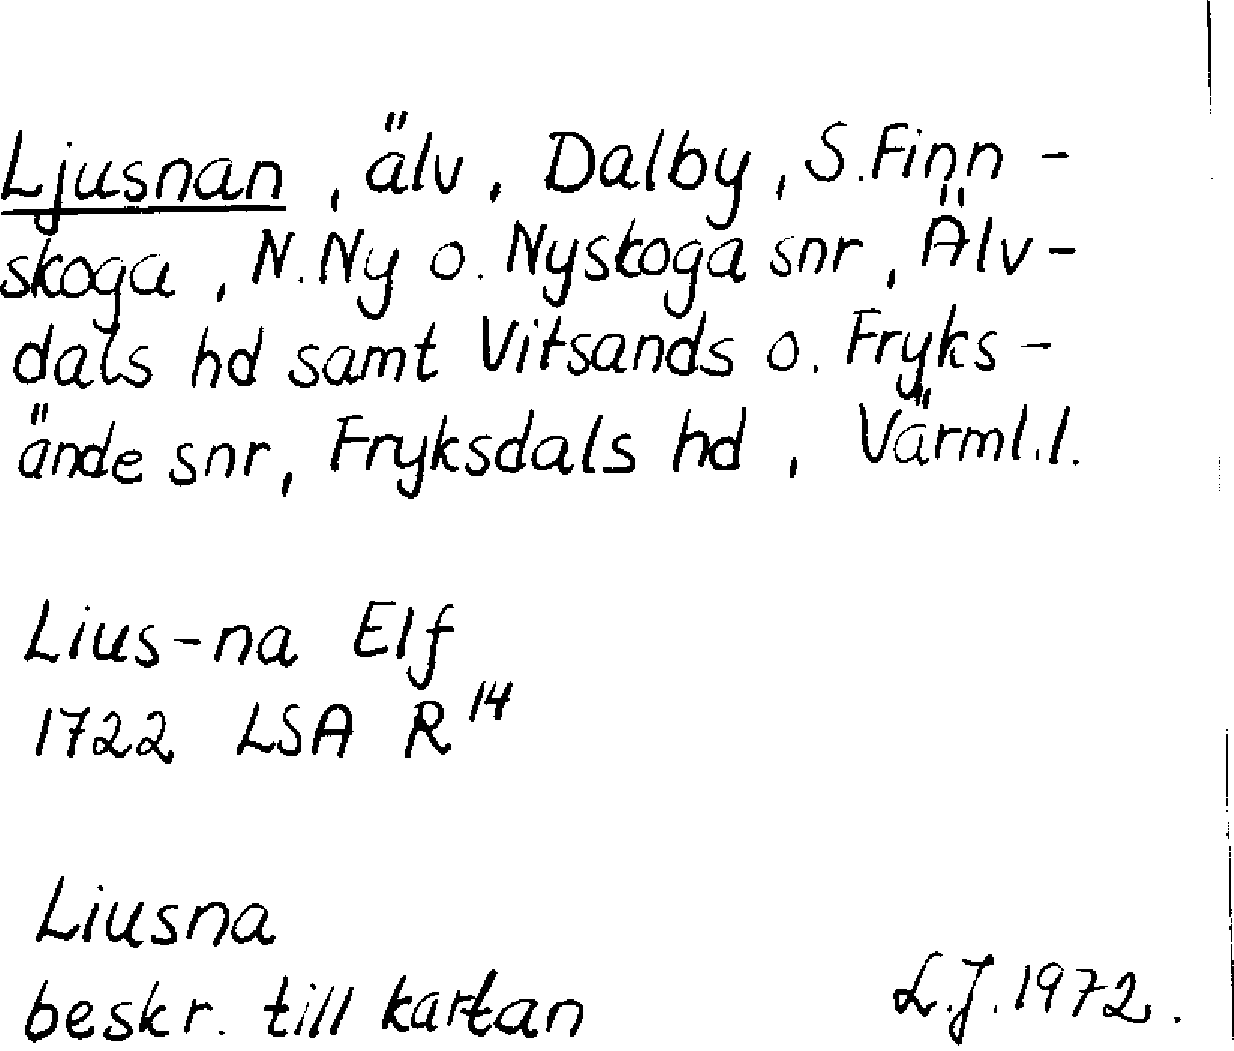 Ljusnan, älv, Dalby, S.Finn-
skoga, N.Ny o. Nyskoga snr, Älv-
dals hd samt Vitsands o. Fryks-
ände snr, Fryksdals hd, Värml.l.
Lius-na Elf
1722 LSA R 14
Liusna
beskr. till kartan
L.J.1972.